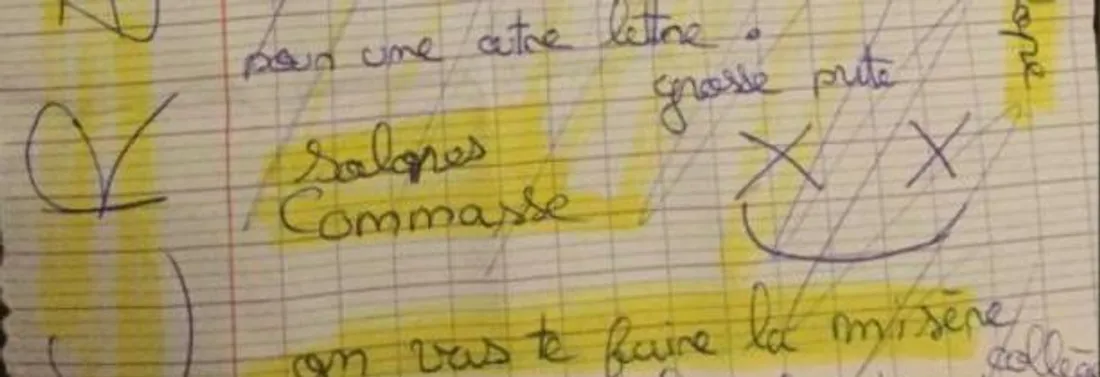 pour une atre lettre.
grosse pute
Salopes
Commasse
on vas te faire la misère